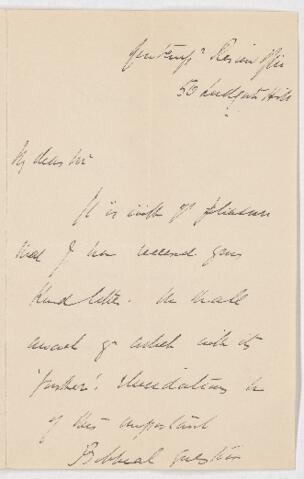 Contempy Review Office
50 Ludgate Hill
My dear Sir
It is with gt pleasure
that I have received your
kind letter. We shall
await yr which with its
'further' elucidations
of this important
Biblical question